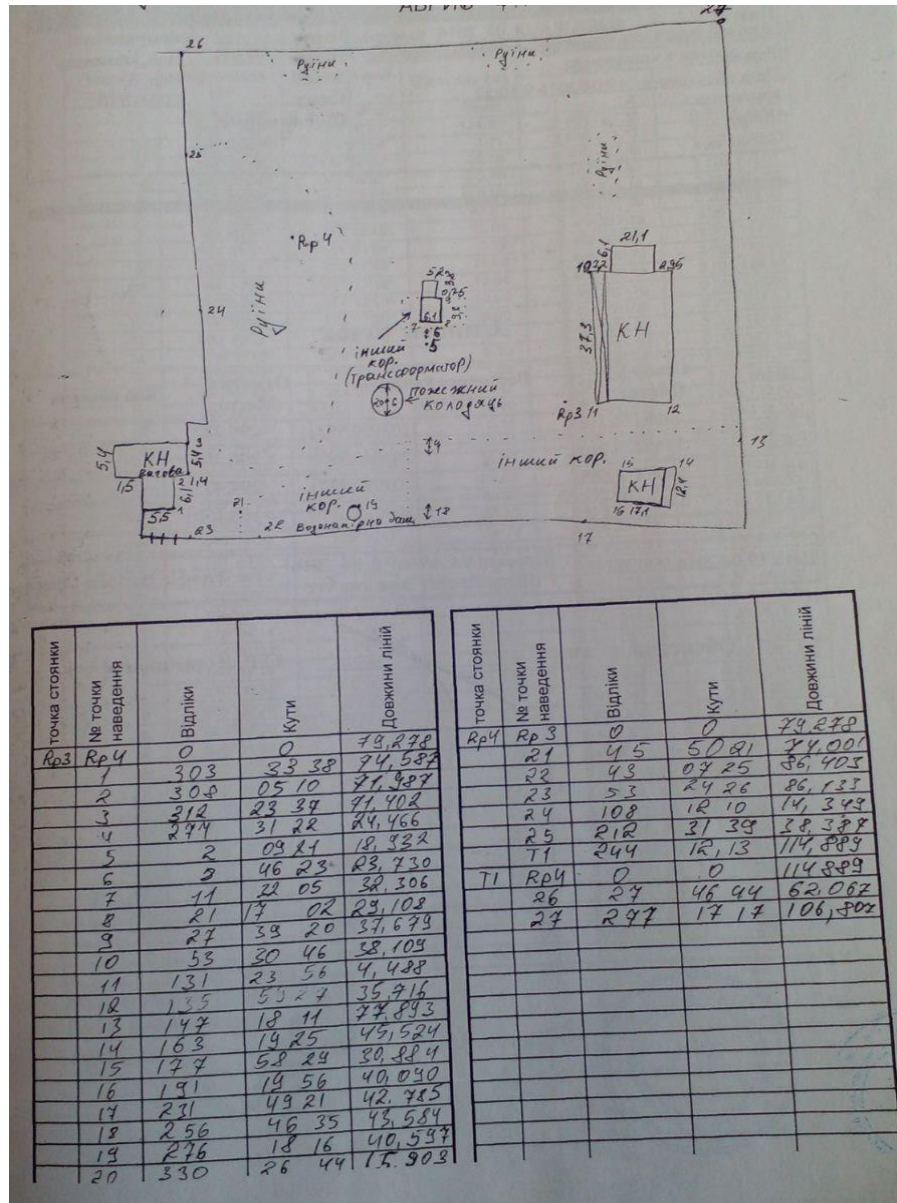 27
26
Руїни
Руїни
25
Руїни
Rp 4
21,1
6,1
24
Руїни
37,3
КН
6,1
7
5
інший
кор.
(трансформатор)
пожежний
колодязь
Rp3 11
12
13
5,4
КН
вагова
3
5,4
2 1,4
1,5
6,1
5,5
1
4
інший кор.
15
14
КН
12,4
16 17,1
21
інший
кор.
19
18
23
22
Водонапірна баш.
17
точка стоянки № точки наведення Відліки Кути Довжини ліній
Rp3 Rp4 0 0 79,278
1 303 33 38 74,587
2 308 05 10 71,987
3 312 23 37 71,402
4 274 31 22 24,466
5 2 09 21 18,932
6 46 23 23,730
7 11 22 05 32,306
8 21 17 02 29,108
9 27 39 20 37,679
10 53 30 46 38,109
11 131 23 56 4,488
12 135 35,716
13 147 18 11 77,893
14 163 19 25 45,524
15 177 58 29 30,884
16 191 19 56 40,090
17 231 49 21 42,785
18 256 46 35 43,584
19 276 18 16 40,597
20 330 26 44 15,903
точка стоянки № точки наведення Відліки Кути Довжини ліній
Rp4 Rp 3 0 0 79,278
21 45 50 21 74,001
22 43 07 25 86,403
23 53 24 26 86,133
24 108 12 10 14,349
25 212 31 39 38,387
T1 244 12,13 114,889
T1 Rp4 0 0 114889
26 27 46 44 62,067
27 277 17 17 106,807